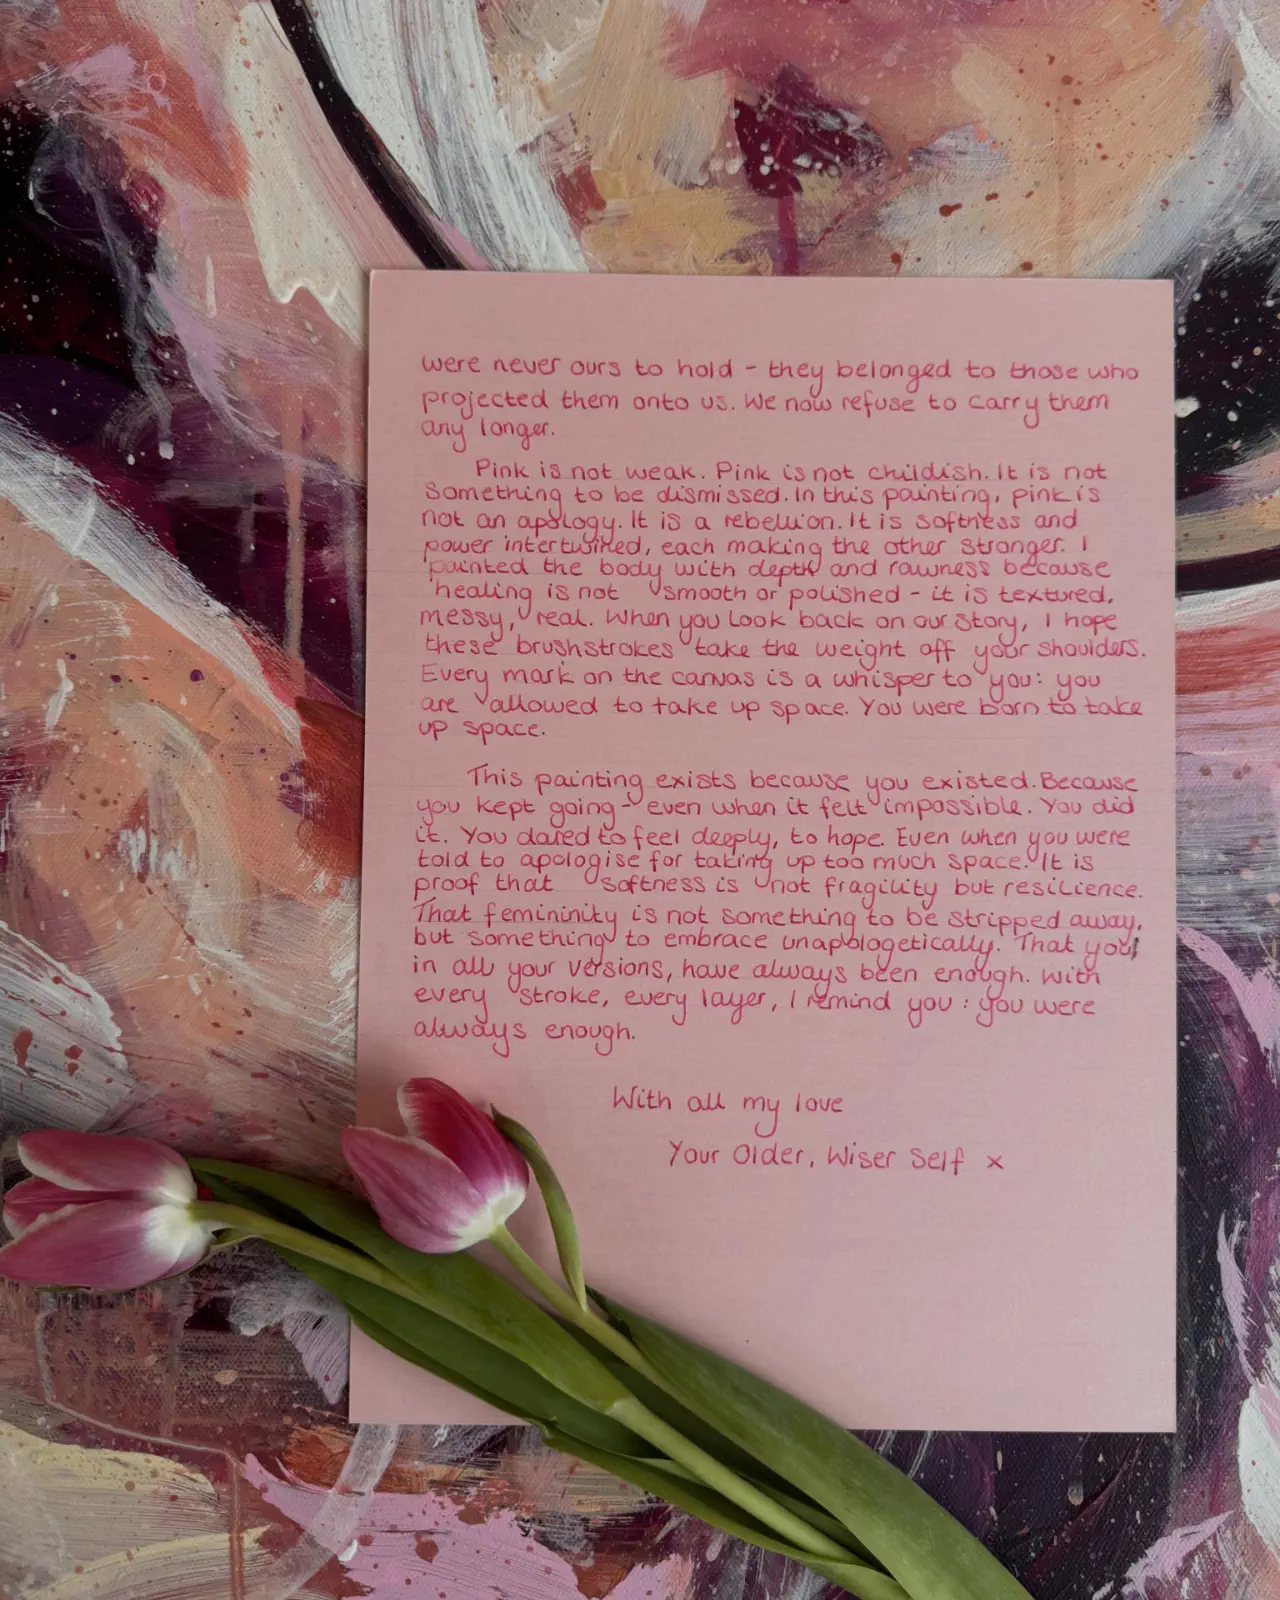 were never ours to hold - they belonged to those who
projected them onto us. We now refuse to carry them
any longer.
Pink is not weak. Pink is not childish. It is not
something to be dismissed. In this painting, pink is
not an apology. It is a rebellion. It is softness and
power intertwined, each making the other stronger. I
painted the body with depth and rawness because
healing is not smooth or polished - it is textured,
messy, real. When you look back on our story, I hope
these brushstrokes take the weight off your shoulders.
Every mark on the canvas is a whisper to you: you
are allowed to take up space. You were born to take
up space.
This painting exists because you existed. Because
you kept going - even when it felt impossible. You did
it. You dared to feel deeply, to hope. Even when you were
told to apologise for taking up too much space. It is
proof that softness is not fragility but resilience.
That femininity is not something to be stripped away,
but something to embrace unapologetically. That you,
in all your versions, have always been enough. With
every stroke, every layer, I remind you: you were
always enough.
With all my love
Your Older, Wiser Self x